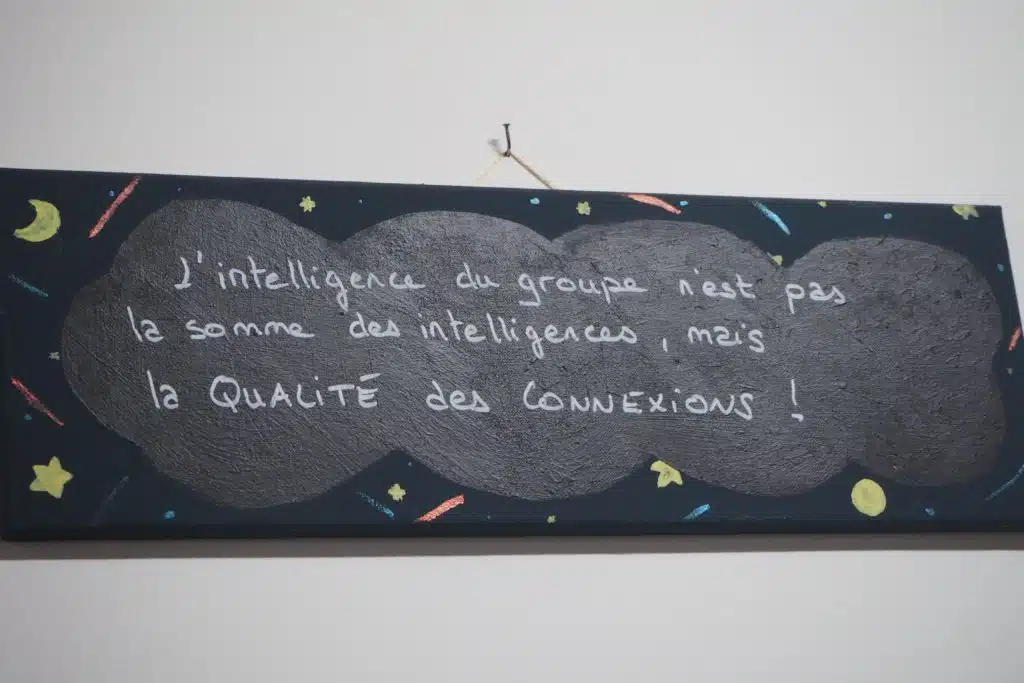 L'intelligence du groupe n'est pas
la somme des intelligences, mais
la QUALiTÉ des CONNEXIONS !